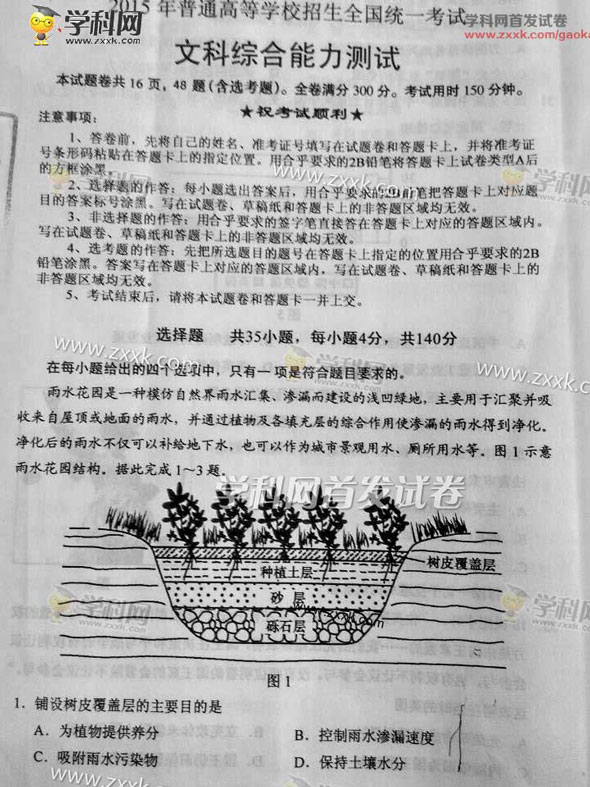 2015年普通高等学校招生全国统一考试
学科网首发试卷
www.zxxk.com/gaoka
学科网
www.zxxk.com
文科综合能力测试
本试题卷共16页,48题(含选考题)。全卷满分300分。考试用时150分钟。
★祝考试顺利★
注意事项:
1、答卷前,先将自己的姓名、准考证号填写在试题卷和答题卡上,并将准考证
号条形码粘贴在答题卡上的指定位置。用合乎要求的2B铅笔将答题卡上试卷类型A后
的方框涂黑。
2、选择题的作答:每小题选出答案后,用合乎要求的2B铅笔把答题卡上对应题
目的答案标号涂黑。写在试题卷、草稿纸和答题卡上的非答题区域均无效。
3、非选择题的作答:用合乎要求的签字笔直接答在答题卡上对应的答题区域内。
写在试题卷、草稿纸和答题卡上的非答题区域均无效。
4、选考题的作答:先把所选题目的题号在答题卡上指定的位置用合乎要求的2B
铅笔涂黑。答案写在答题卡上对应的答题区域内,写在试题卷、草稿纸和答题卡上的
非答题区域均无效。
5、考试结束后,请将本试题卷和答题卡一并上交。
选择题 共35小题,每小题4分,共140分
www.zxxk.com
www.zxxk.com
在每小题给出的四个选项中,只有一项是符合题目要求的。
雨水花园是一种模仿自然界雨水汇集、渗漏而建设的浅凹绿地,主要用于汇聚并吸
收来自屋顶或地面的雨水,并通过植物及各填充层的综合作用使渗漏的雨水得到净化。
净化后的雨水不仅可以补给地下水,也可以作为城市景观用水、厕所用水等。图1示意
雨水花园结构。据此完成1~3题。
学科网首发试卷
树皮覆盖层
种植土层
砂 层
砾石层
学科网
www.zxxk.com
学科网
www.zxxk.com
图1
1. 铺设树皮覆盖层的主要目的是
A. 为植物提供养分 B. 控制雨水渗漏速度
C. 吸附雨水污染物 D. 保持土壤水分
www.zxxk.com
学科网
www.zxxk.com